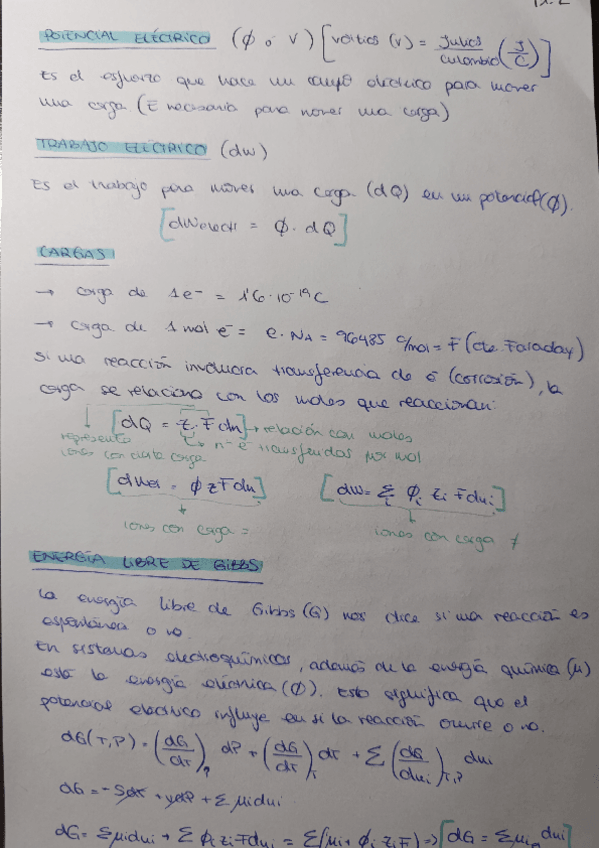 POTENCIAL ELÉCTRICO (ϕ ó V) [voltios (V) = Julios/culombio (J/C)]
Es el esfuerzo que hace un campo eléctrico para mover
una carga (E necesaria para mover una carga)
TRABAJO ELÉCTRICO (dw)
Es el trabajo para mover una carga (dQ) en un potencial (ϕ).
[dWelect = ϕ · dQ]
CARGAS
→ carga de 1e⁻ = 1'6·10⁻¹⁹ C
→ carga de 1 mol e⁻ = e·NA = 96485 C/mol = F (cte. Faraday)
Si una reacción involucra transferencia de ē (corrosión), la
carga se relaciona con los moles que reaccionan:
[dQ = z·F dn] → relación con moles
representa
iones con cierta carga
nº e⁻ transferidos por mol
[dWel = ϕ z F dn] [dw = Σi ϕi zi F dni]
iones con carga = iones con carga ≠
ENERGÍA LIBRE DE GIBBS
La energía libre de Gibbs (G) nos dice si una reacción es
espontánea o no.
En sistemas electroquímicos, además de la energía química (μ)
está la energía eléctrica (ϕ). Esto significa que el
potencial eléctrico influye en si la reacción ocurre o no.
dG(T,P) = (dG/dT)P dP + (dG/dT)T dT + Σ (dG/dni)T,P dni
dG = -SdT + VdP + Σ μi dni
dG = Σ μi dni + Σ ϕi zi F dni = Σ(μi + ϕi zi F) => [dG = Σ μi dni]